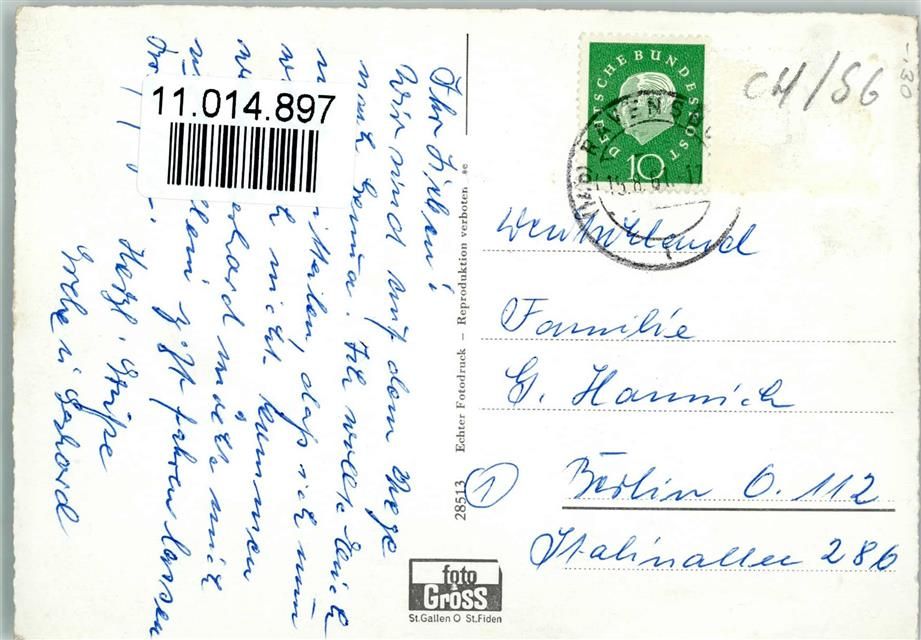 11.014.897
Ihr Lieben!
Wir sind auf dem Wege
nach Genua. Ich wollte Euch
mitteilen, daß ich nun
nicht kommen
Gerhard möchte mich
allein jetzt fahren lassen
Herzl. Grüße
Grete u. Gerhard
28513 Echter Fotodruck – Reproduktion verboten
foto
GROSS
St.Gallen O St.Fiden
DEUTSCHE BUNDESPOST
10
RAVENSBURG
CH/SG
-.30
Deutschland
Familie
G. Hannich
1
Berlin O. 112
Stalinallee 286